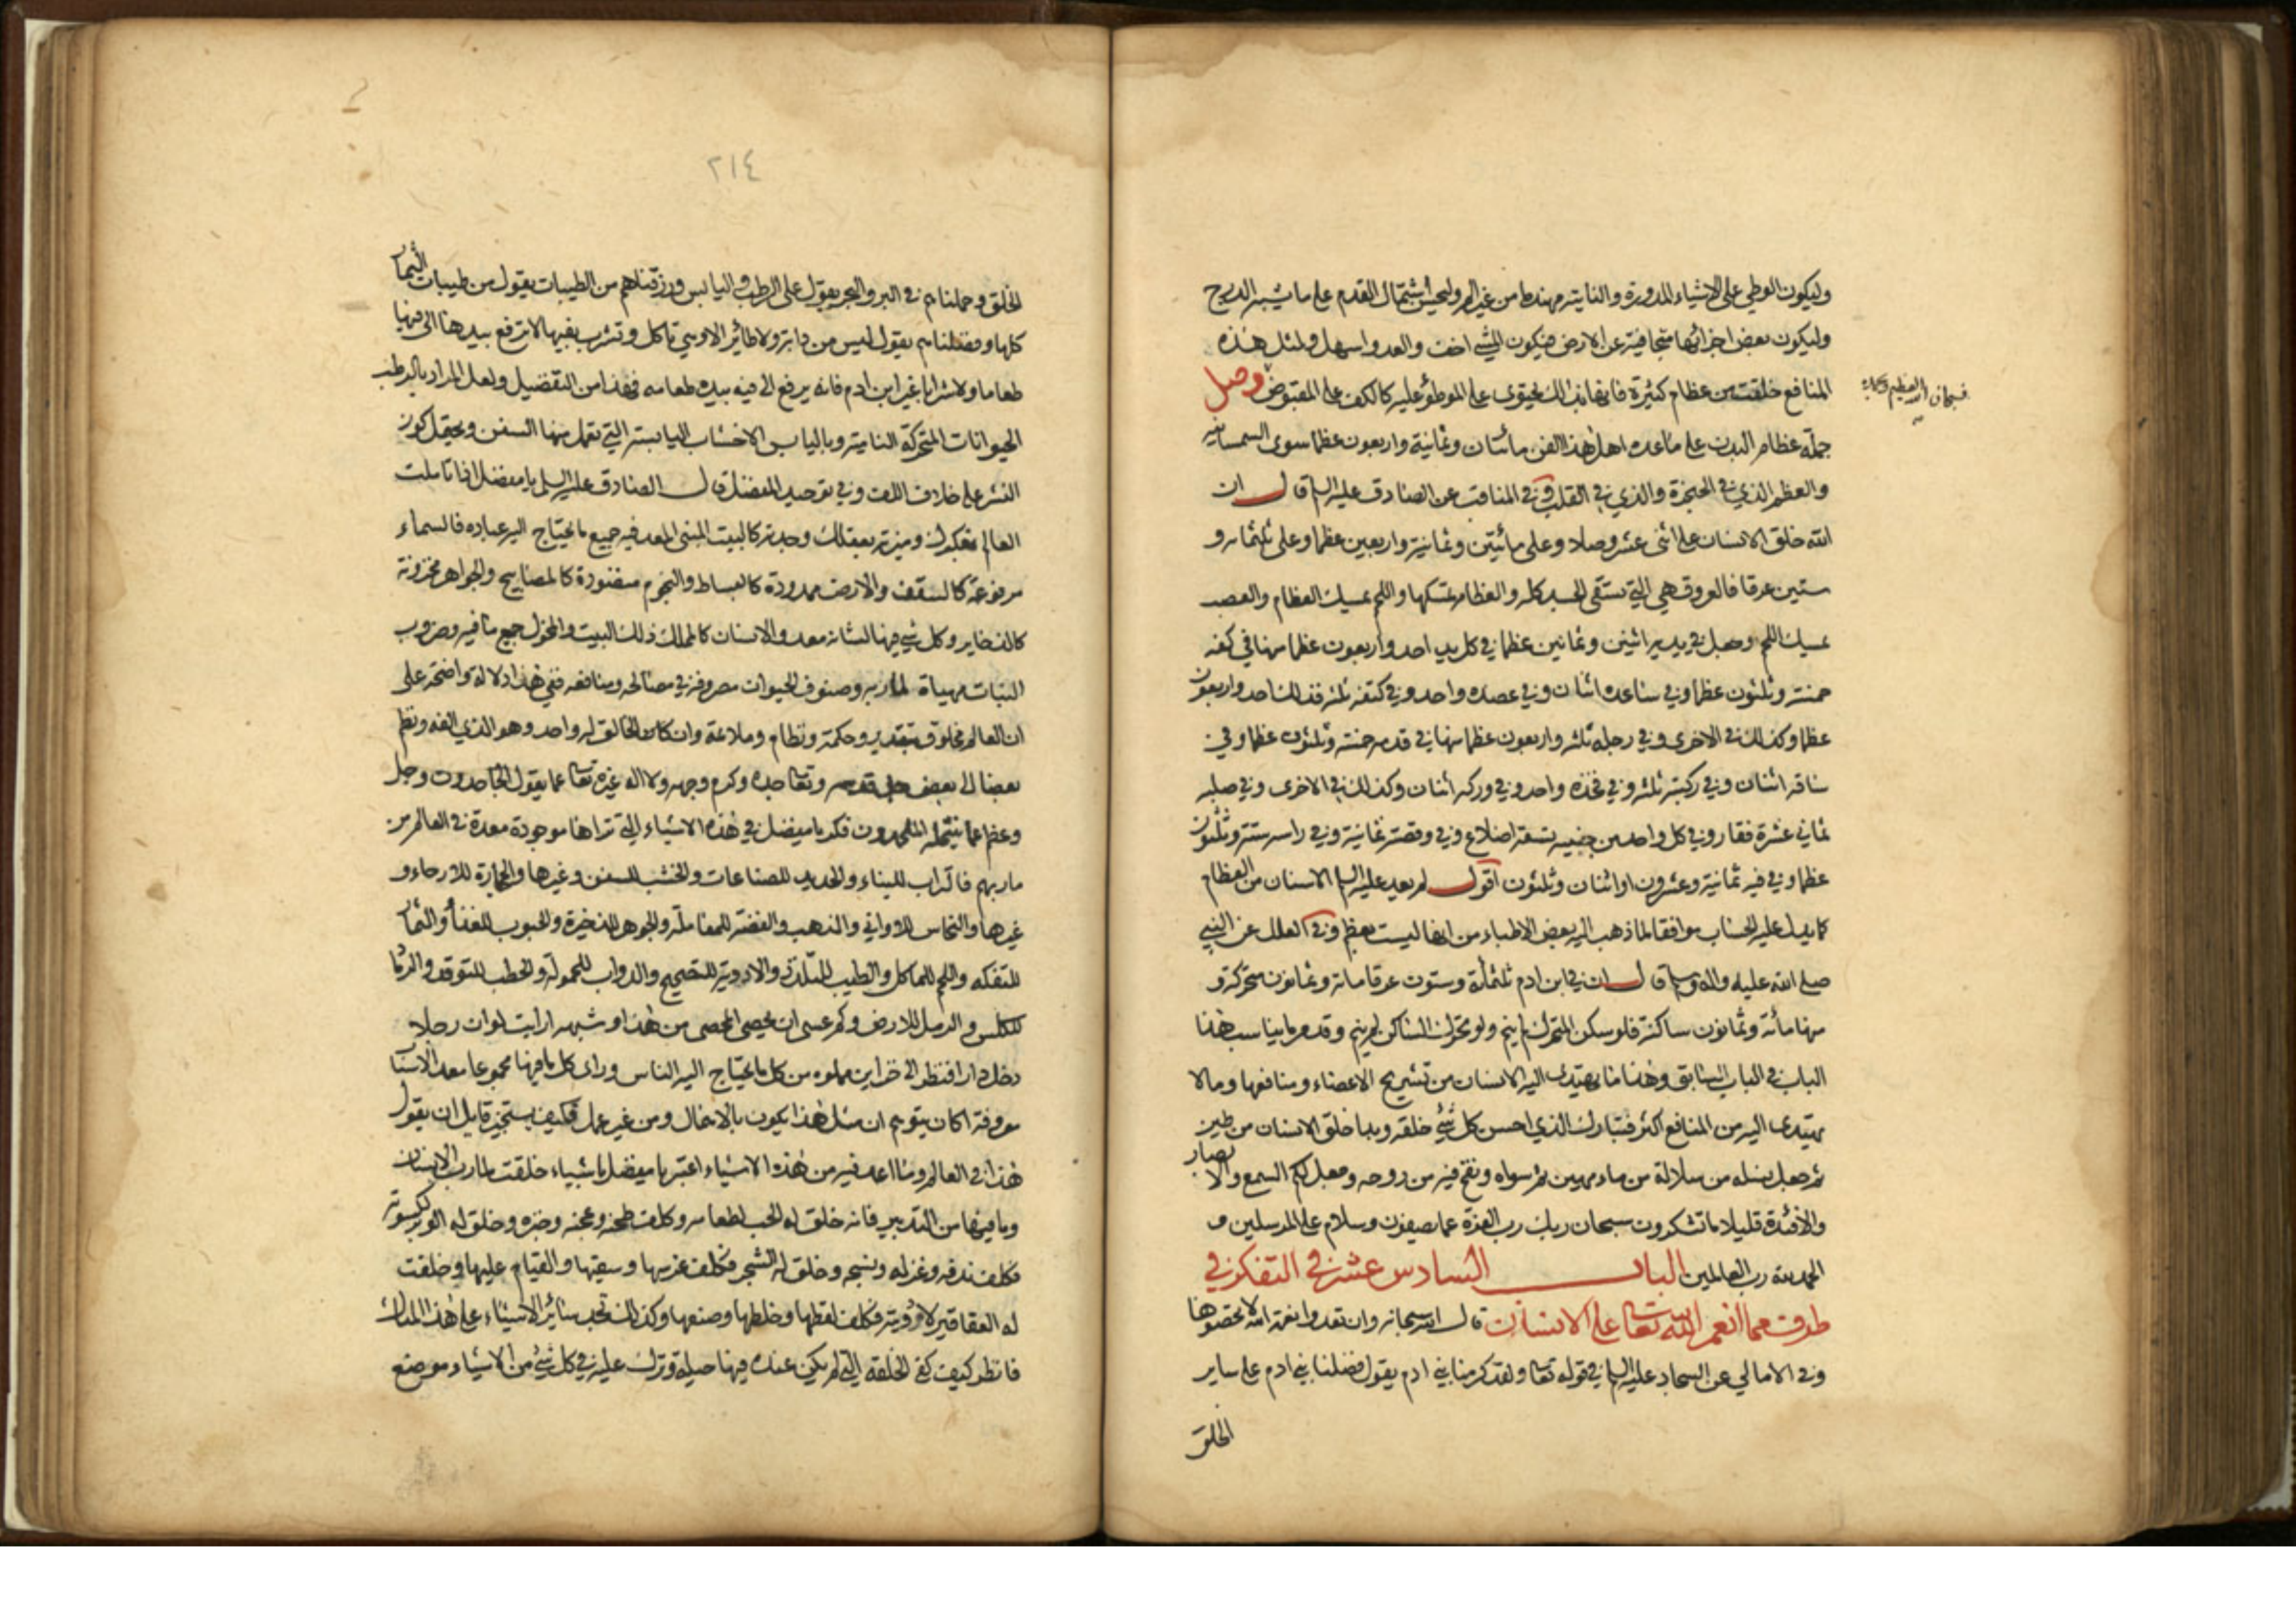 وليكون الوطي على الاشياء المدورة والناتية مهندما من غير الم وليحسن اشتمال القدم على ما يشبه الدرج
وليكون بعض اجزائها متجافية عن الارض فيكون المشي اخف والعدو اسهل ولمثل هذه
المنافع خلقت من عظام كثيرة فانها بذلك يحتوى على الموطؤ عليه كالكف على المقبوض وصل
فسبحان الله العظيم وبحمده
جملة عظام البدن على ما عده اهل هذا الفن مائتان وثمانية واربعون عظما سوى السمسمانيه
والعظم الذي في الحنجرة والذي في القلب وفي المناقب عن الصادق عليه السلم قال ان
الله خلق الانسان على اثنى عشر وصلا وعلى مائيتن وثمانية واربعين عظما وعلى ثلثمائه و
ستين عرقا فالعروق هي التي تسقى الجسد كله والعظام تمسكها واللحم يمسك العظام والعصب
يمسك اللحم وجعل في يديه اثنين وثمانين عظما في كل يد احد واربعون عظما منها في كفه
خمسة وثلثون عظما وفي ساعده اثنان وفي عضده واحد وفي كتفه ثلثه فذلك احد واربعون
عظما وكذلك في الاخرى وفي رجله ثلثه واربعون عظما منها في قدمه خمسة وثلثون عظما وفي
ساقه اثنان وفي ركبته ثلثه وفي فخذه واحد وفي وركه اثنان وكذلك في الاخرى وفي صلبه
ثماني عشرة فقار وفي كل واحد من جنبيه تسعة اضلاع وفي وقصته ثمانية وفي راسه ستة وثلثون
عظما وفي فيه ثمانية وعشرون او اثنان وثلثون اقول لم يعد عليه السلم الاسنان من العظام
كما يدل عليه الحساب موافقا لما ذهب اليه بعض الاطباء من انها ليست بعظم وفي العلل عن النبي
صلى الله عليه واله وسلم قال ان في ابن ادم ثلثمأة وستون عرقا ماة وثمانون متحركة و
منها مائة وثمانون ساكنة فلو سكن المتحرك لم ينم ولو تحرك الساكن لم ينم وقد مر ما يناسب هذا
الباب في الباب السابق وهذا ما يهتدى اليه الانسان من تشريح الاعضاء ومنافعها وما لا
يهتدى اليه من المنافع اكثر فتبارك الذي احسن كل شئ خلقه وبدا خلق الانسان من طين
ثم جعل نسله من سلالة من ماء مهين ثم سواه ونفخ فيه من روحه وجعل لكم السمع والابصار
والافئدة قليلا ما تشكرون سبحان ربك رب العزة عما يصفون وسلام على المرسلين و
الحمد لله رب العالمين الباب السادس عشر في التفكر في
طرف مما انعم الله تعالى على الانسان قال الله سبحانه وان تعدوا نعمة الله لا تحصوها
وفي الامالي عن السجاد عليه السلم في قوله تعالى ولقد كرمنا بني ادم يقول فضلنا بني ادم على ساير
الخلق
٢١٤
الخلق وحملناهم في البر والبحر يقول على الرطب واليابس ورزقناهم من الطيبات يقول من طيبات الثمار
كلها وفضلناهم يقول ليس من دابة ولا طائر الا وهي تاكل وتشرب بفيها لا ترفع بيدها الى فيها
طعاما ولا شرابا غير ابن ادم فانه يرفع الى فيه بيده طعامه فهذا من التفضيل ولعل المراد بالرطب
الحيوانات المتحركة النامية وباليابس الاخشاب اليابسة التي تعمل منها السفن ويحتمل كون
النشر على خلاف اللف وفي توحيد المفضل قال الصادق عليه السلم يا مفضل اذا تاملت
العالم بفكرك وميزته بعقلك وجدته كالبيت المبنى المعد فيه جميع ما يحتاج اليه عباده فالسماء
مرفوعة كالسقف والارض ممدودة كالبساط والنجوم منضودة كالمصابيح والجواهر مخزونة
كالذخاير وكل شئ فيها لشانه معد والانسان كالمملك ذلك البيت والمخول جميع ما فيه وضروب
النبات مهياة لماربه وصنوف الحيوان مصروفة في مصالحه ومنافعه ففي هذا دلالة واضحة على
ان العالم مخلوق بتقدير وحكمة ونظام وملائمة وان الخالق له واحد وهو الذي الفه ونظم
بعضا الى بعض جل قدسه وتعالى جده وكرم وجهه ولا اله غيره تعالى عما يقول الجاحدون وجل
وعظم عما ينتحله الملحدون فكر يا مفضل في هذه الاشياء التي تراها موجودة معدة في العالم من
ماربهم فالتراب للبناء والحديد للصناعات والخشب للسفن وغيرها والحجارة للارحاء و
غيرها والنحاس للاواني والذهب والفضة للمعاملة والجوهر للذخيرة والحبوب للغذاء والثمار
للتفكه واللحم للماكل والطيب للتلذذ والادوية للتصحيح والدواب للحمولة والحطب للتوقد والرماد
للكلس والرمل للارض وكم عسى ان يحصى المحصى من هذا وشبهه ارايت لو ان رجلا
دخل دارا فنظر الى خزاين مملوه من كل ما يحتاج اليه الناس وراى كل ما فيها مجموعا معد الاسباب
معروفة اكان يتوهم ان مثل هذا يكون بالاهمال ومن غير عمل فكيف يستجيز قايل ان يقول
هذا في العالم وما اعد فيه من هذه الاشياء اعتبر يا مفضل باشياء خلقت لمارب الانسان
وما فيها من التدبير فانه خلق له الحب لطعامه وكلف طحنه وعجنه وخبزه وخلق له الوبر لكسوته
فكلف ندفه وغزله ونسجه وخلق له الشجر فكلف غرسها وسقيها والقيام عليها وخلقت
له العقاقير لادويته فكلف لقطها وخلطها وصنعها وكذلك تجد سائر الاشياء على هذا المثال
فانظر كيف كفى الخلقة التي لم يكن عنده فيها حيلة وترك عليه في كل شئ من الاشياء موضع